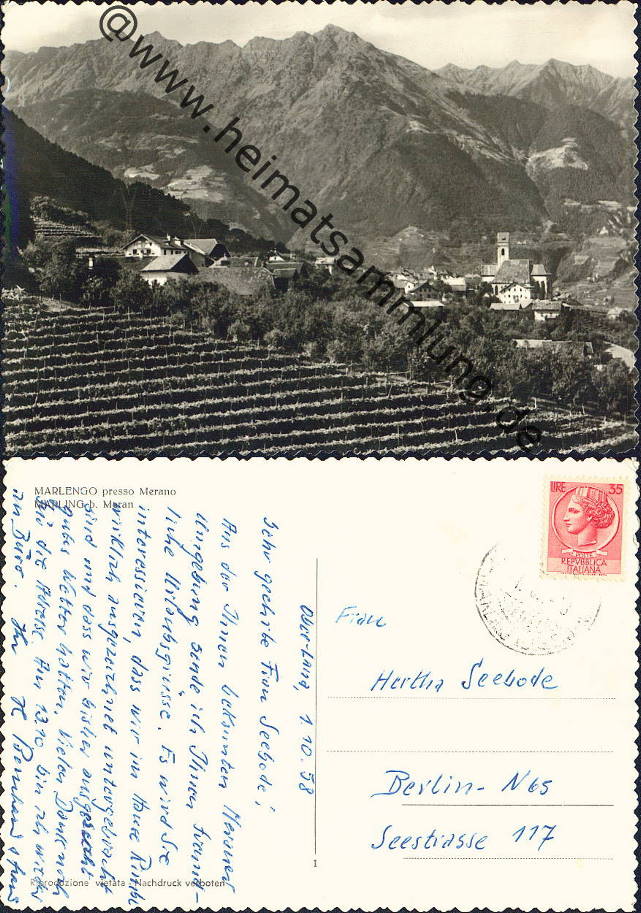 @www.heimatsammlung.de
MARLENGO presso Merano
MARLING b. Meran
LIRE 35
REPVBBLICA
ITALIANA
1.10.58
Sehr geehrte Frau Seebode!
Aus der Ihnen bekannten Meraner
Umgebung sende ich Ihnen freund-
liche Urlaubsgrüsse. Es wird Sie
interessieren dass wir im Hause
wirklich ausgezeichnet untergebracht
sind und dass wir bisher ausgesucht
gutes Wetter hatten. Vielen Dank noch
für die Adresse. Am 13.10 bin ich wieder
im Büro. Ihr
Frau
Hertha Seebode
Berlin - N65
Seestrasse 117
1
Riproduzione vietata - Nachdruck verboten